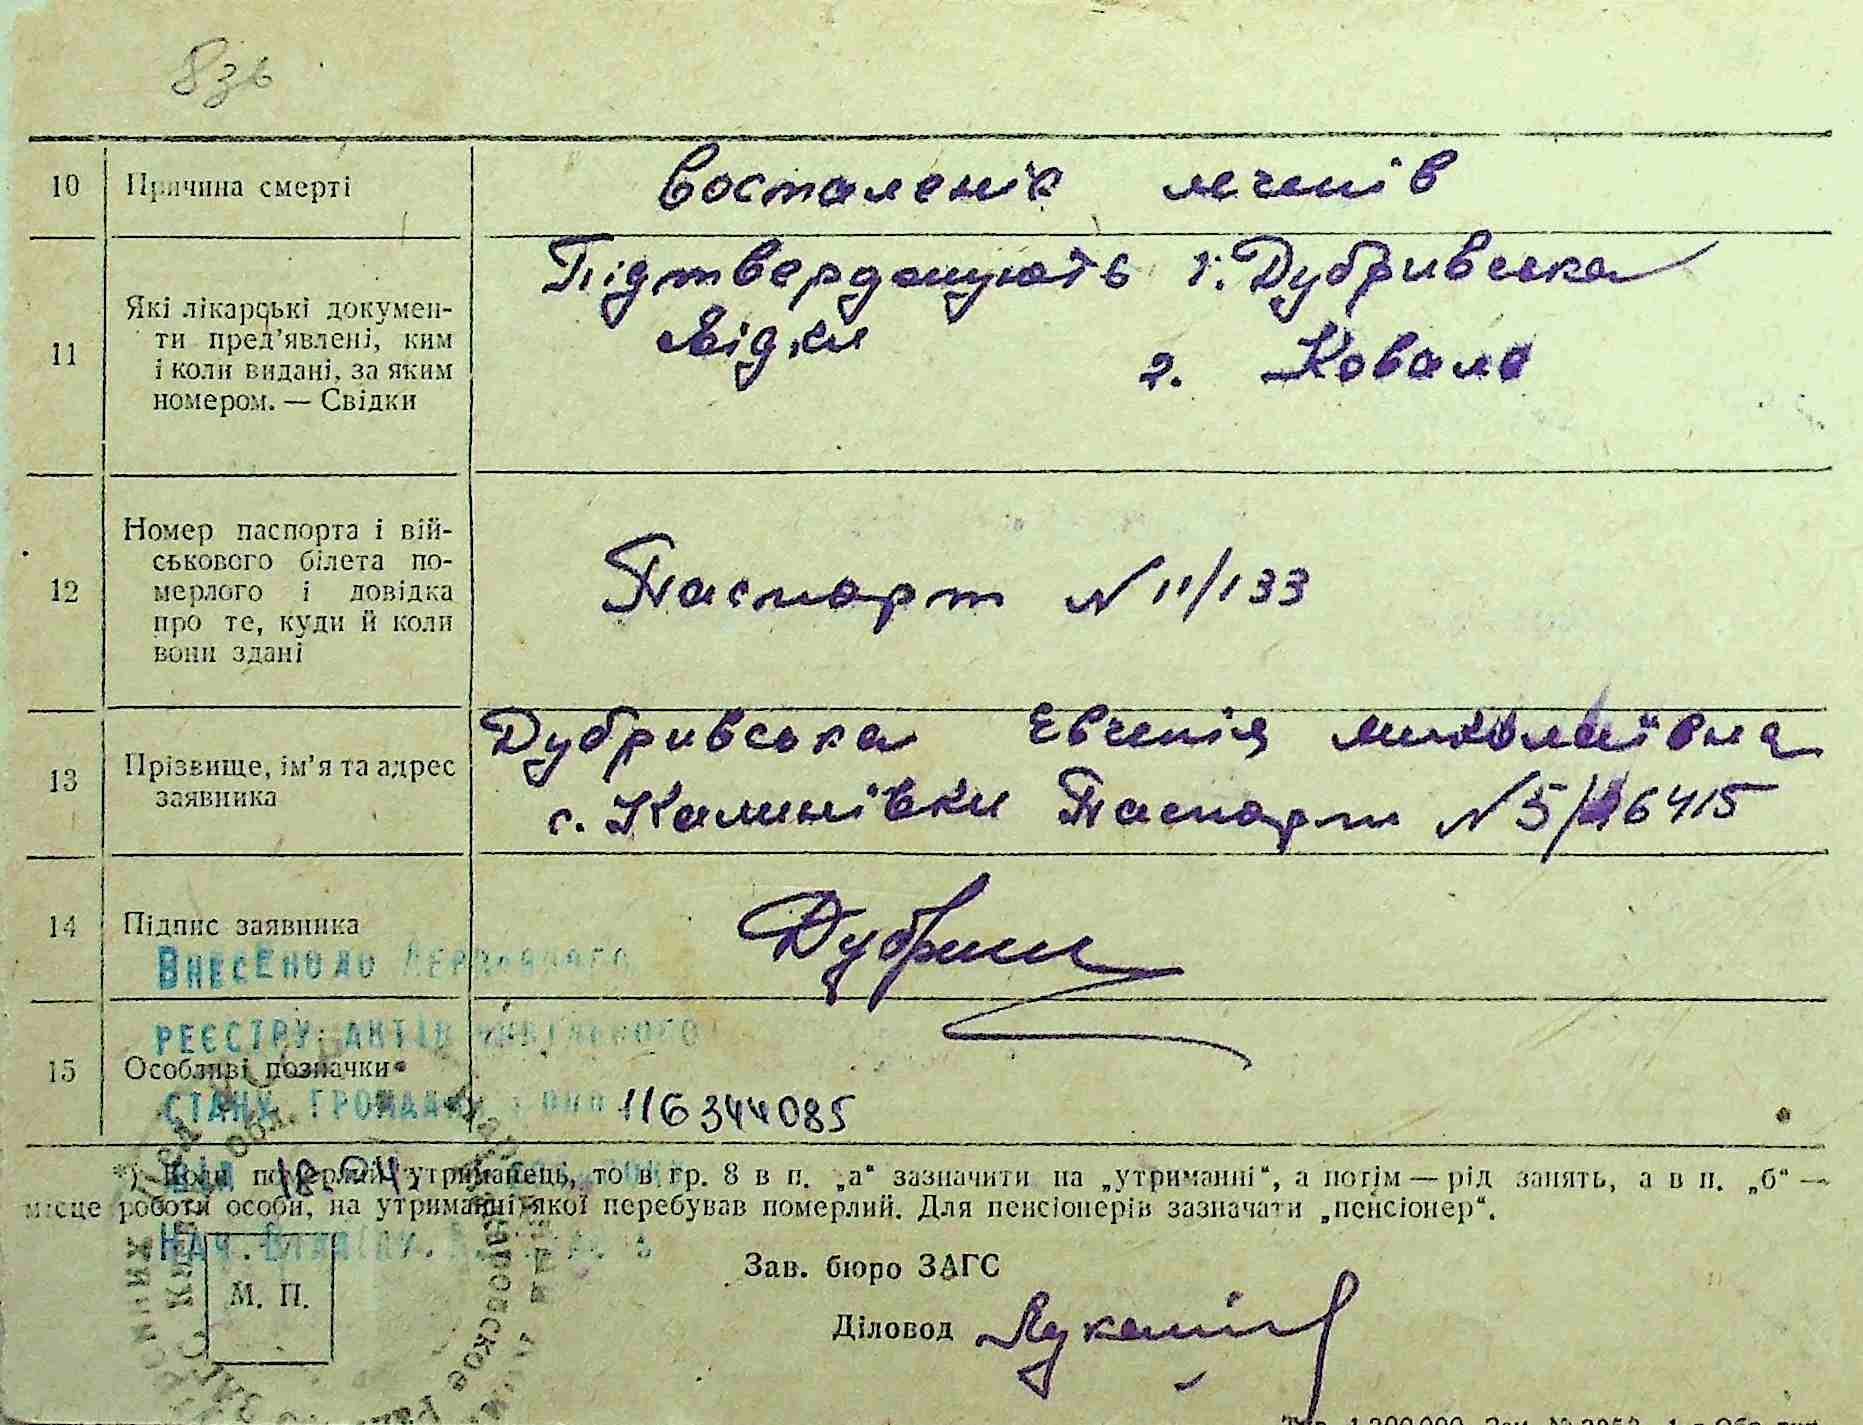 10 Причина смерті
Воспаленіє легенів
11 Які лікарські докумен-
ти пред’явлені, ким
і коли видані, за яким
номером. — Свідки
Підтверджують г. Дубривська
свідки г. Коваль
12 Номер паспорта і вій-
ськового білета по-
мерлого і довідка
про те, куди й коли
вони здані
Паспорт N 11/133
13 Прізвище, ім’я та адрес
заявника
Дубривська Євгенія Миколаївна
с. Калинівки Паспорт N 5/16415
14 Підпис заявника
Внесено до Державного
реєстру актів цивільного
15 Особливі позначки
стану громадян
116344085
*) Коли померлий утриманець, то в гр. 8 в п. „а“ зазначити на „утриманні“, а потім — рід занять, а в п. „б“ —
місце роботи особи, на утриманні якої перебував померлий. Для пенсіонерів зазначати „пенсіонер“.
Зав. бюро ЗАГС
М. П.
Діловод